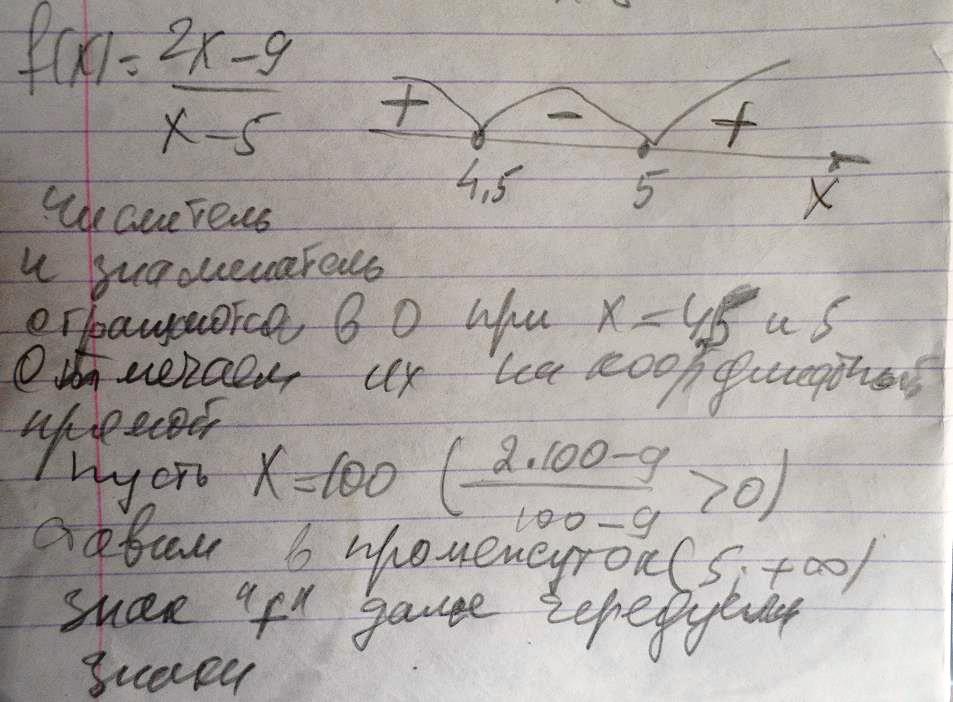 f(x) = 2x - 9
x - 5
+ - +
4,5 5 x
числитель
и знаменатель
отращаются в 0 при x = 4,5 и 5
Отмечаем их на координатной
прямой
Пусть x = 100 ( 2·100 - 9 > 0 )
100 - 9
ставим в промежуток (5; +∞)
знак "+" далее чередуем
знаки